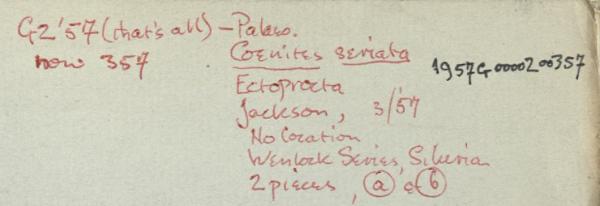 G2'57 (that's all) – Palaeo.
now 357
Coenites seriata
1957G0000200357
Ectoprocta
Jackson, 3/'57
No location
Wenlock Series, Siluria
2 pieces, a & b